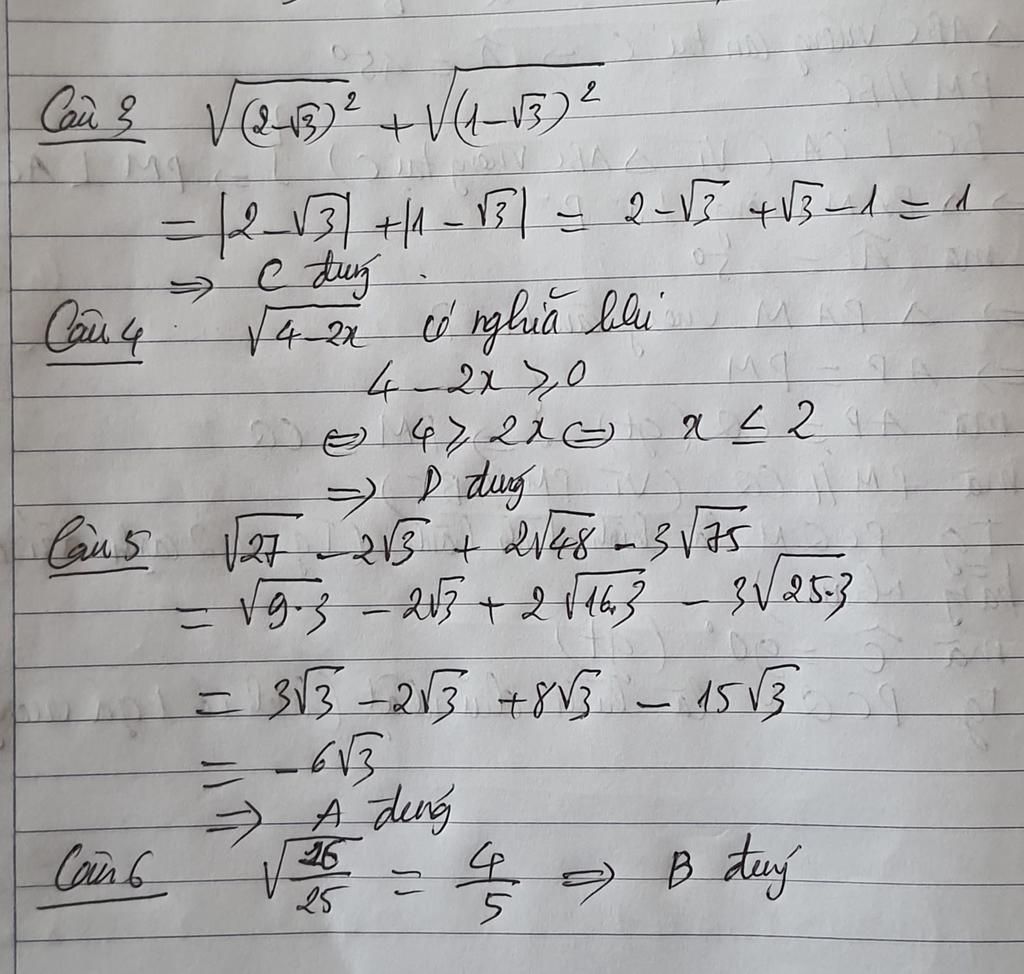 Câu 3 √(2-√3)² + √(1-√3)²
= |2-√3| + |1-√3| = 2-√3 + √3-1 = 1
⇒ C đúng.
Câu 4 √4-2x có nghĩa khi
4 - 2x ≥ 0
⇔ 4 ≥ 2x ⇔ x ≤ 2
⇒ D đúng
Câu 5 √27 - 2√3 + 2√48 - 3√75
= √9.3 - 2√3 + 2√16.3 - 3√25.3
= 3√3 - 2√3 + 8√3 - 15√3
= -6√3
⇒ A đúng
Câu 6 √16/25 = 4/5 ⇒ B đúng